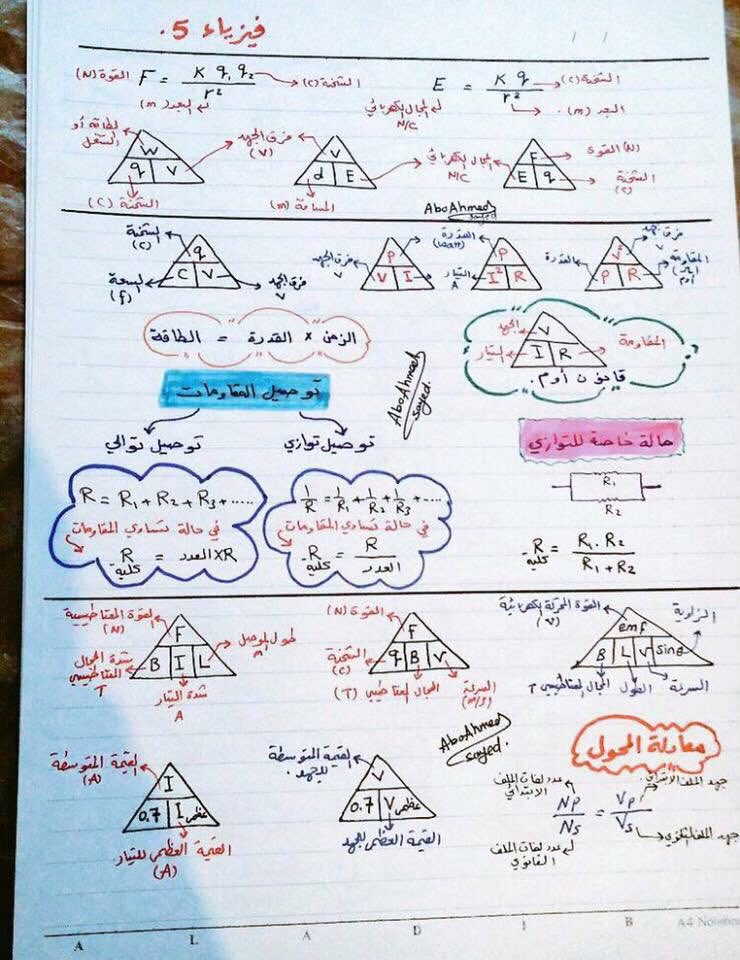 فيزياء 5.
القوة (N) F = K q₁ q₂ / r² الشحنة (C)
البعد (m)
E = K q / r² الشحنة (C)
البعد (m).
المجال الكهربائي N/C
الطاقة أو الشغل
W
q V
الشحنة (C)
فرق الجهد (V)
V
d E
المسافة (m)
المجال الكهربائي N/C
F
E q
القوة (N)
الشحنة (C)
AboAhmed sayed
الشحنة (C)
q
C V
السعة (f)
فرق الجهد V
فرق الجهد V
P
V I
التيار A
القدرة (watt)
P
I² R
القدرة
V²
P R
فرق جهد V
المقاومة
أوم
الطاقة = القدرة × الزمن
المقاومة
الجهد
V
التيار
I R
قانون أوم.
AboAhmed sayed.
توصيل المقاومات
توصيل توازي
توصيل توالي
حالة خاصة للتوازي
R = R₁ + R₂ + R₃ + .....
في حالة تساوي المقاومات
R كلية = العدد × R
1/R = 1/R₁ + 1/R₂ + 1/R₃ + ....
في حالة تساوي المقاومات
R كلية = R / العدد
R₁
R₂
R كلية = R₁ . R₂ / R₁ + R₂
القوة المغناطيسية (N)
F
B I L
شدة المجال المغناطيسي T
شدة التيار A
طول الموصل m
القوة (N)
f
q B V
الشحنة (C)
المجال المغناطيسي (T)
السرعة (m/s)
القوة المحركة الكهربائية (V)
emf
B L V sinθ
الزاوية
المجال المغناطيسي T
الطول
السرعة
القيمة المتوسطة (A)
I
0.7 I عظمى
القيمة العظمى للتيار (A)
القيمة المتوسطة للجهد.
V
0.7 V عظمى
القيمة العظمى للجهد
AboAhmed sayed.
معادلة المحول
عدد لفات الملف الابتدائي
جهد الملف الابتدائي
NP / NS = VP / VS
جهد الملف الثانوي
عدد لفات الملف الثانوي
A L A D I B A4 Notebook